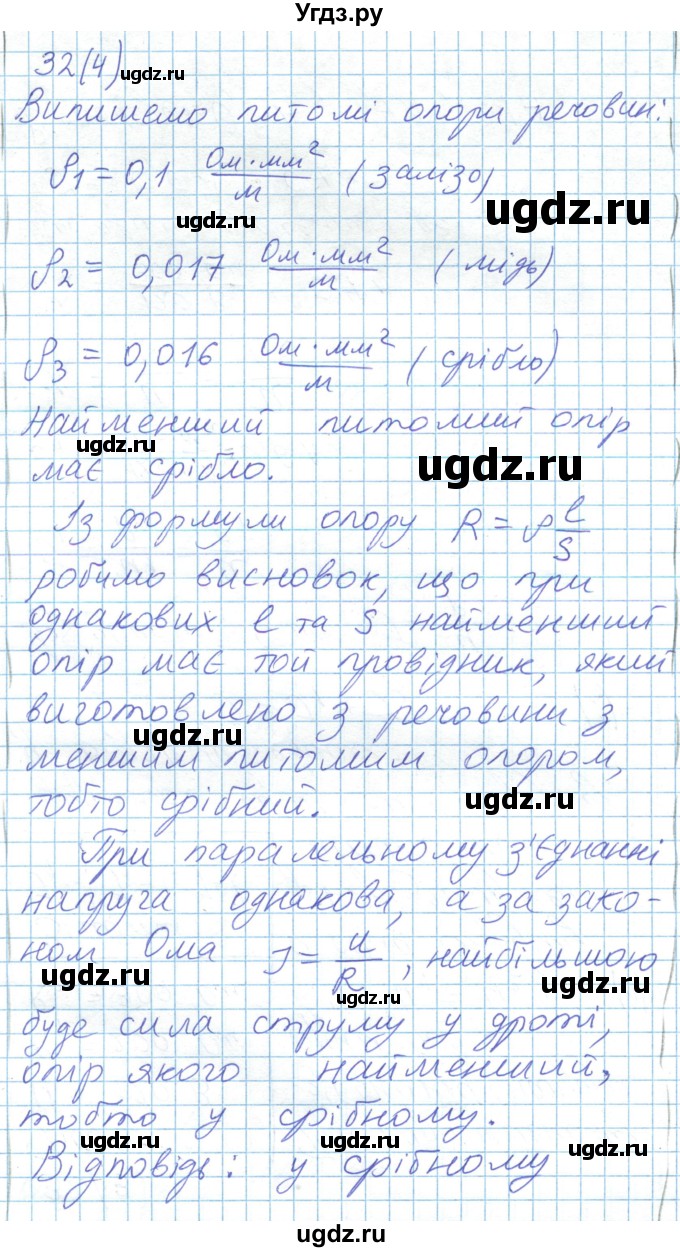 Угдз.ру
32(4)
ugdz.ru
Випишемо питомі опори речовин:
ρ₁ = 0,1 Ом·мм²/м (залізо)
ugdz.ru
ugdz.ru
ρ₂ = 0,017 Ом·мм²/м (мідь)
ρ₃ = 0,016 Ом·мм²/м (срібло)
Найменший питомий опір
ugdz.ru
має срібло.
ugdz.ru
Із формули опору R = ρ l/S
робимо висновок, що при
однакових l та S найменший
опір має той провідник, який
виготовлено з речовини з
ugdz.ru
меншим питомим опором,
ugdz.ru
тобто срібний.
При паралельному з'єднанні
напруга однакова, а за зако-
ном Ома I = U/R, найбільшою
ugdz.ru
ugdz.ru
ugdz.ru
буде сила струму у дроті,
опір якого найменший,
тобто у срібному.
ugdz.ru
ugdz.ru
ugdz.ru
Відповідь: у срібному
ugdz.ru